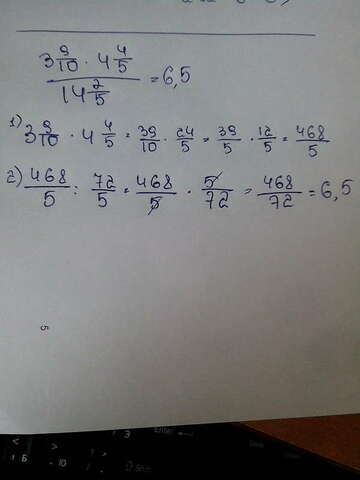 3 9/10 · 4 4/5 / 14 2/5 = 6,5
1) 3 9/10 · 4 4/5 = 39/10 · 24/5 = 39/5 · 12/5 = 468/5
2) 468/5 : 72/5 = 468/5 · 5/72 = 468/72 = 6,5
5